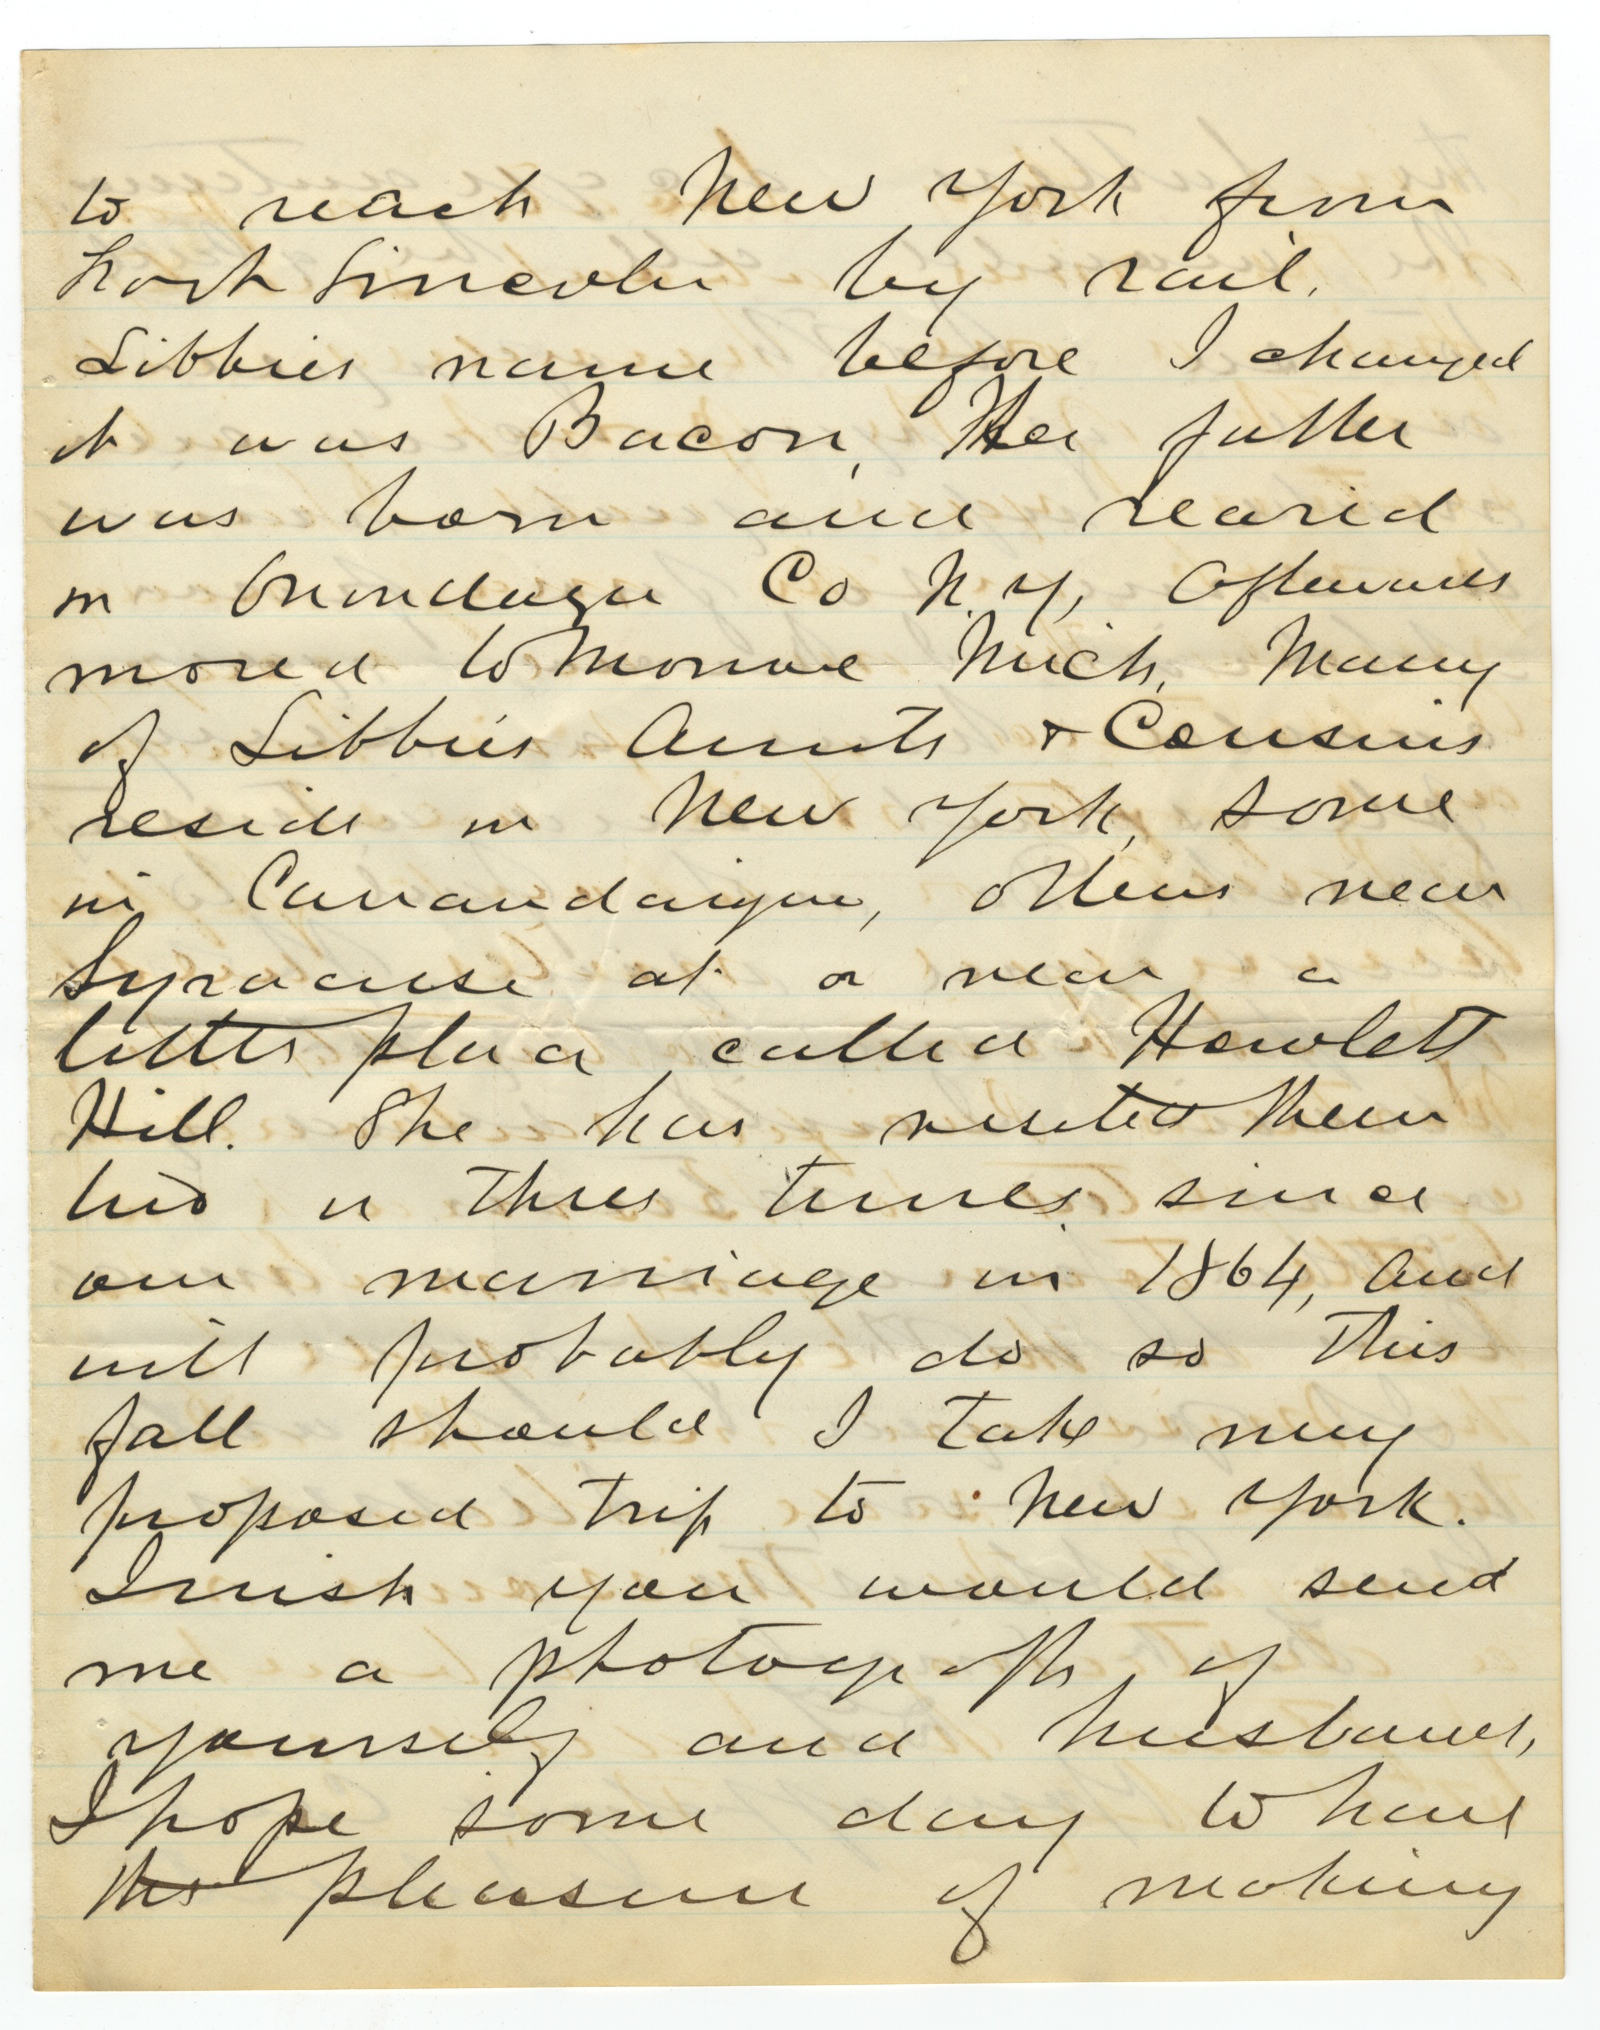 to reach New York from
Fort Lincoln by rail.
Libbies name before I changed
it was Bacon, Her father
was born and reared
in Onondaga Co N.Y, Afterwards
moved to Monroe Mich. Many
of Libbie's Aunts & Cousins
reside in New York, some
in Canandaigua, others near
Syracuse at or near a
little place called Howlett
Hill. She has visited them
two or three times since
our marriage in 1864, and
will probably do so this
fall should I take my
proposed trip to New York.
I wish you would send
me a photograph of
yourself and husband,
I hope some day to have
the pleasure of making